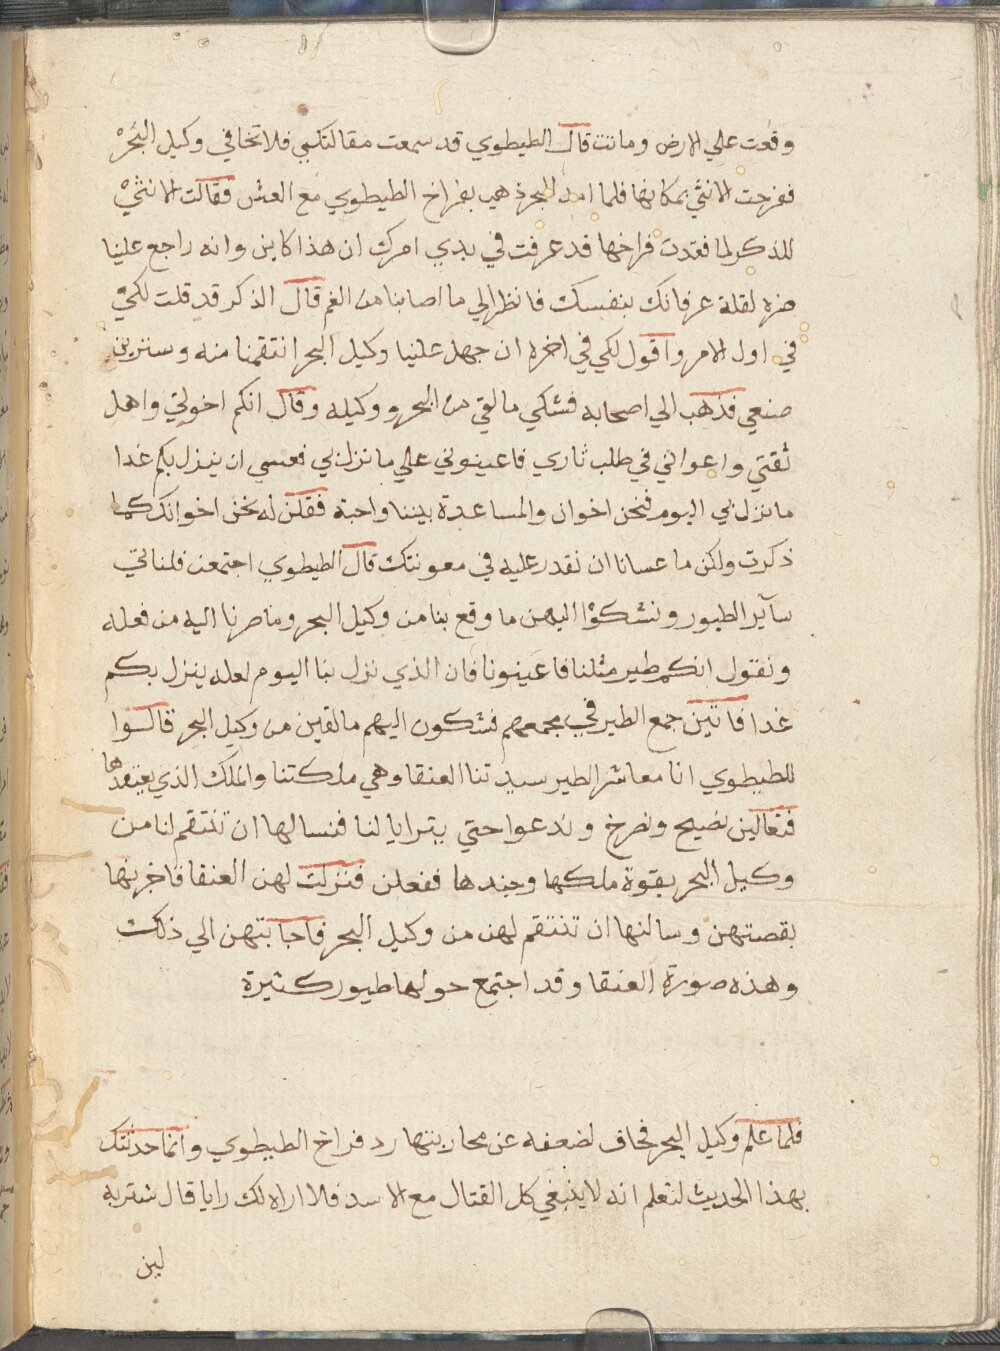 وقعت علي الارض وماتت قال الطيطوي قد سمعت مقالتكي فلا تخافي وكيل البحر
ففرحت الانثي بمكانها فلما امد البحر ذهب بفراخ الطيطوي مع العش فقالت الانثي
للذكر لما فقدت فراخها قد عرفت في بدي امرك ان هذا كاين وانه راجع علينا
ضره لقلة عرفانك بنفسك فانظر الي ما اصابنا من الغم قال الذكر قد قلت لكي
في اول الامر واقول لكي في اخره ان جهل علينا وكيل البحر انتقمنا منه وسترين
صنعي فذهب الي اصحابه فشكي ما لقي من البحر ووكيله وقال انكم اخوتي واهل
ثقتي واعواني في طلب ثاري فاعينوني علي ما نزل بي فعسي ان ينزل بكم غدا
ما نزل بي اليوم فنحن اخوان والمساعدة بيننا واجبة فقلن له نحن اخوانك كما
ذكرت ولكن ما عسانا ان نقدر عليه في معونتك قال الطيطوي اجتمعن فلناتي
سآير الطيور ونشكوا اليهن ما وقع بنا من وكيل البحر وما صرنا اليه من فعله
ونقول انكم طير مثلنا فاعينونا فان الذي نزل بنا اليوم لعله ينزل بكم
غدا فاتين جمع الطير في مجمعهم فشكون اليهم ما لقين من وكيل البحر قالوا
للطيطوي انا معاشر الطير سيدتنا العنقا وهي ملكتنا والملك الذي يعتقدها
فتعالين نصيح ونصرخ وندعوا حتي يترايا لنا فنسالها ان تنتقم لنا من
وكيل البحر بقوة ملكها وجندها ففعلن فنزلت لهن العنقا فاخبرنها
بقصتهن وسالنها ان تنتقم لهن من وكيل البحر فاجابتهن الي ذلك
وهذه صورة العنقا وقد اجتمع حولها طيور كثيرة
فلما علم وكيل البحر فخاف لضعفه عن محاربتها رد فراخ الطيطوي وانما حدثتك
بهذا الحديث لتعلم انه لا ينبغي كل القتال مع الاسد فلا اراه لك رايا قال شتربه